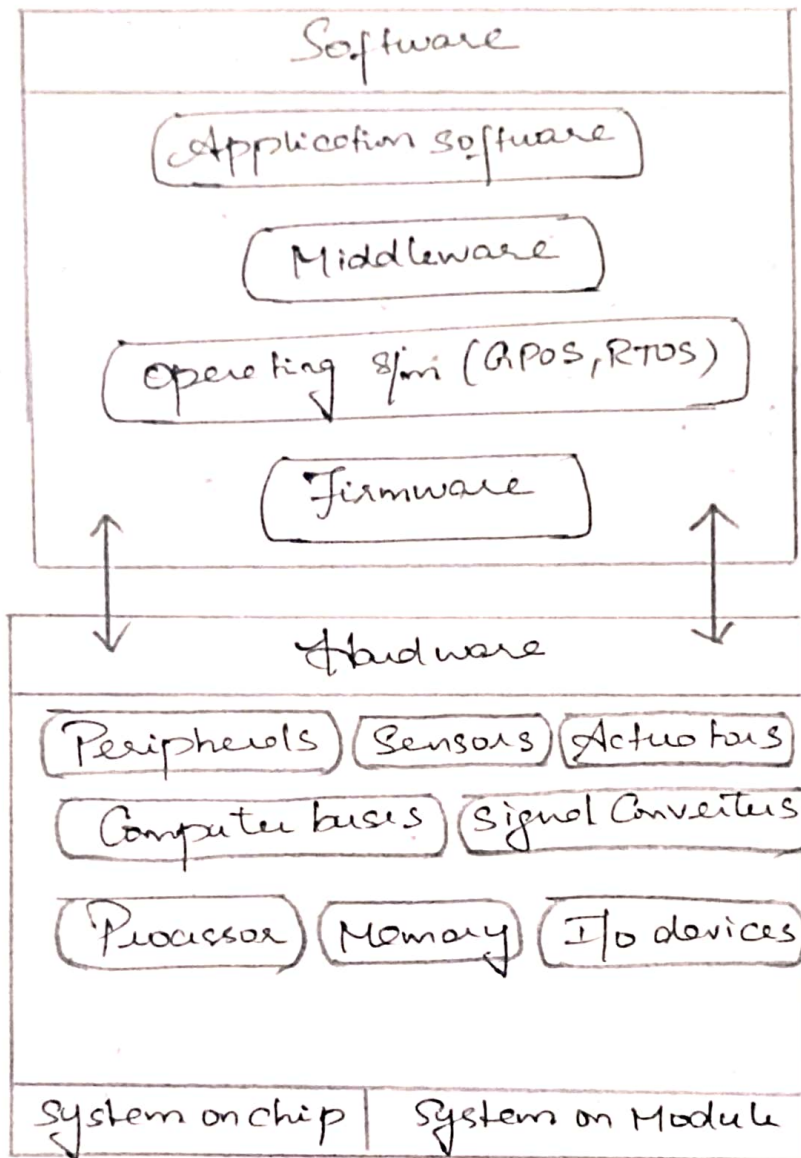 Software
Application software
Middleware
Operating s/m (GPOS, RTOS)
Firmware
Hardware
Peripherals Sensors Actuators
Computer buses Signal Converters
Processor Memory I/o devices
System on chip System on Module